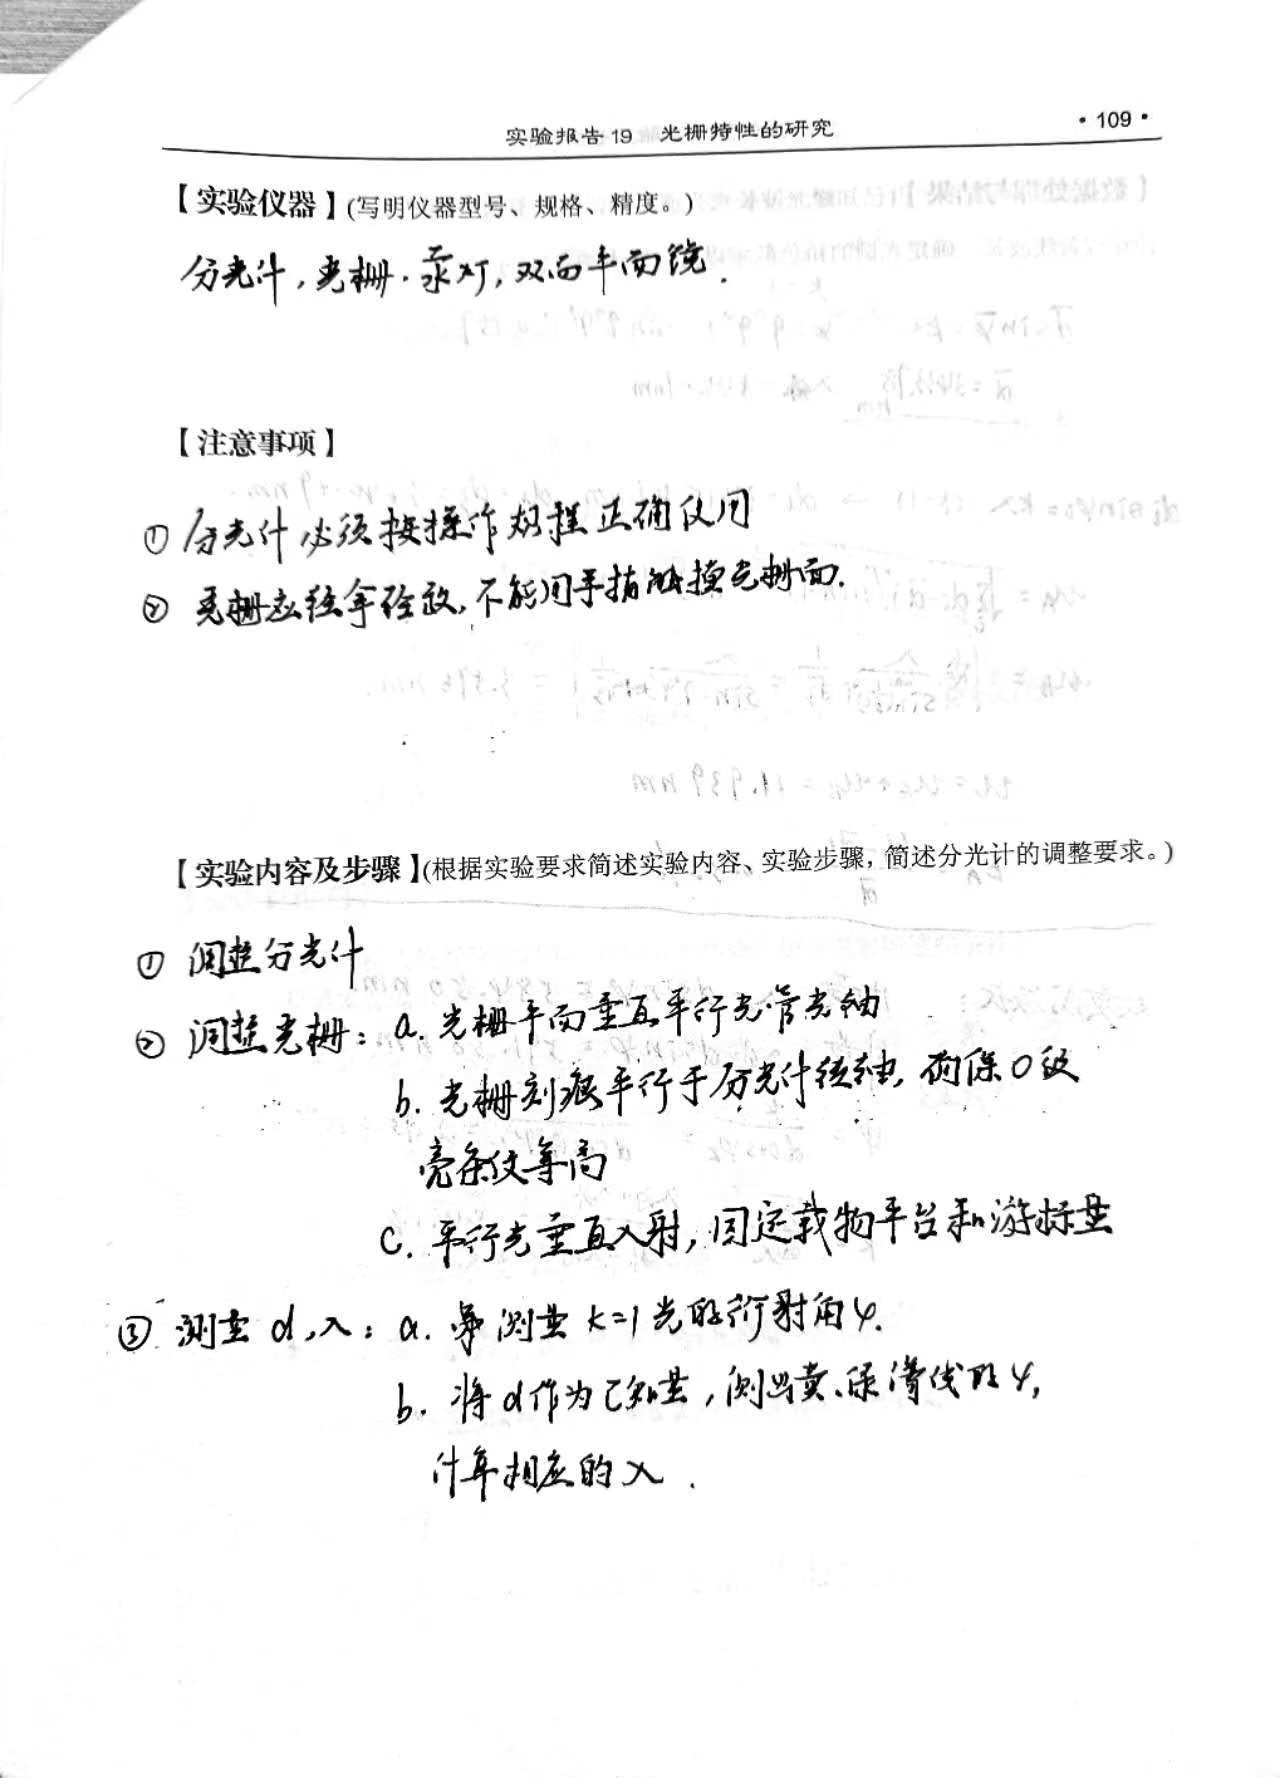 实验报告19 光栅特性的研究 ·109·
【实验仪器】(写明仪器型号、规格、精度。)
分光计，光栅．汞灯，双面平面镜．
【注意事项】
① 分光计必须按操作规程正确使用
② 光栅应轻拿轻放，不能用手指触摸光栅面．
【实验内容及步骤】(根据实验要求简述实验内容、实验步骤，简述分光计的调整要求。)
① 调整分光计
② 调整光栅：a. 光栅平面垂直平行光管光轴
b. 光栅刻痕平行于分光计转轴，确保0级
亮条纹等高
c. 平行光垂直入射，固定载物平台和游标盘
③ 测量 d,λ：a. 测量 k=1 光的衍射角φ.
b. 将d作为已知量，测出黄、绿谱线的φ,
计算相应的λ．